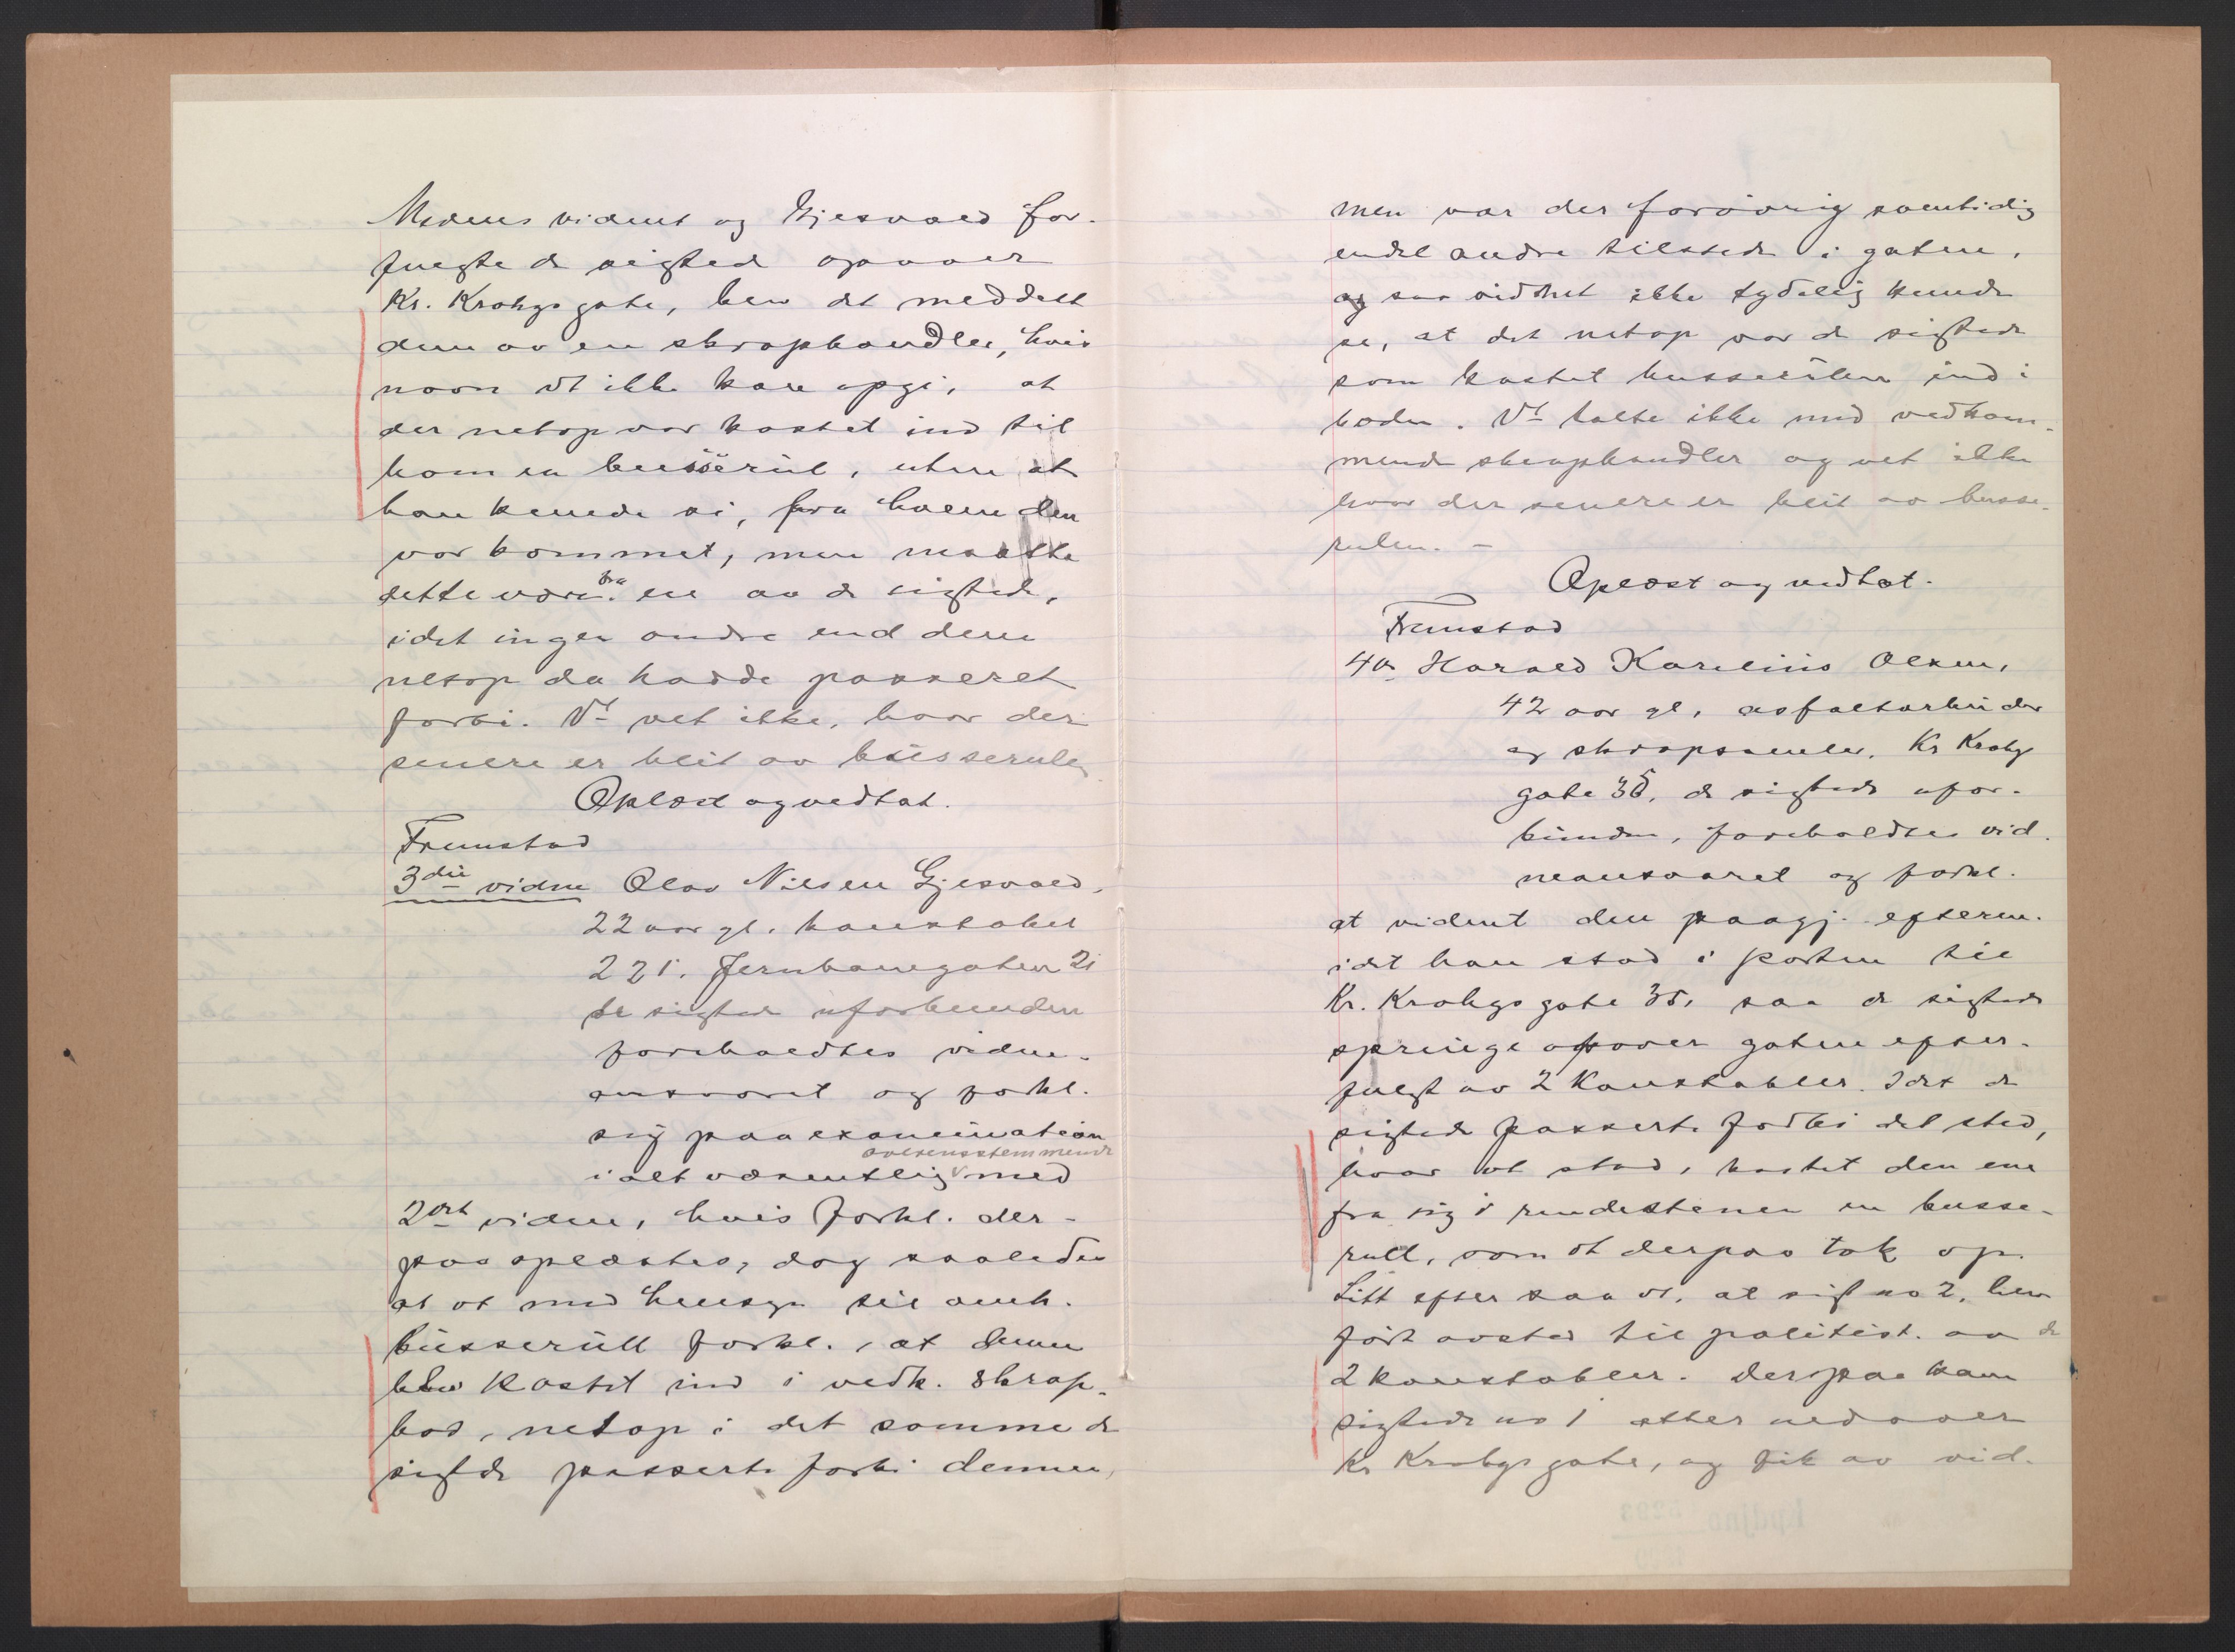 Medens vidnet og Gjesvold for-
fulgte de sigtede opover
Kr. Krohgs gate, blev det meddelt
dem av en skraphandler, hvis
navn vt ikke kan opgi, at
der netop var kastet ind til
ham en busserul, uten at
han kunde si, fra hvem den
var kommet, men maatte
dette være fra en av de sigtede,
idet ingen andre end dem
netop da hadde passeret
forbi. Vt vet ikke, hvor der
senere er blit av busserulen
Oplæst og vedtat.
Fremstod
3die vidne Olav Nilsen Gjesvold,
22 aar gl. konstabel
221. Jernbanegaten 21
de sigtede uforbunden
foreholdtes vidne-
ansvaret og forkl.
sig paa examination
i alt væsentlig overensstemmende med
2det vidne, hvis forkl. der-
paa oplæstes, dog saaledes
at vt med hensyn til omh.
busserull forkl., at denne
blev kastet ind i vedk. skrap-
bod, netop i det samme de
sigtede passerte forbi denne,
men var der forøvrig samtidig
endel andre tilstede i gaten,
og saa vidnet ikke tydelig kunde
se, at det netop var de sigtede
som kastet busserullen ind i
boden. Vt talte ikke med vedkom-
mende skraphandler og vet ikke
hvor der senere er blit av busse-
rulen. -
Oplæst og vedtat.
Fremstod
4de Harald Karelius Olsen,
42 aar gl. asfaltarbeider
og skrapsamler, Kr Krohgs
gate 35, de sigtede ufor-
bunden, foreholdtes vid-
neansvaret og forkl.
at vidnet den paagj. efterm.
idet han stod i porten til
Kr. Krohgs gate 35, saa de sigtede
springe opover gaten efter-
fulgt av 2 konstabler. Idet de
sigtede passerte forbi det sted,
hvor vt stod, kastet den ene
fra sig i rendestenen en busse-
rull, som vt derpaa tok op.
Litt efter saa vt. at sigt no 2, blev
ført avsted til politist. av de
2 konstabler. Derpaa kom
sigtede no 1 atter nedover
Kr Krohgs gate, og fik av vid-